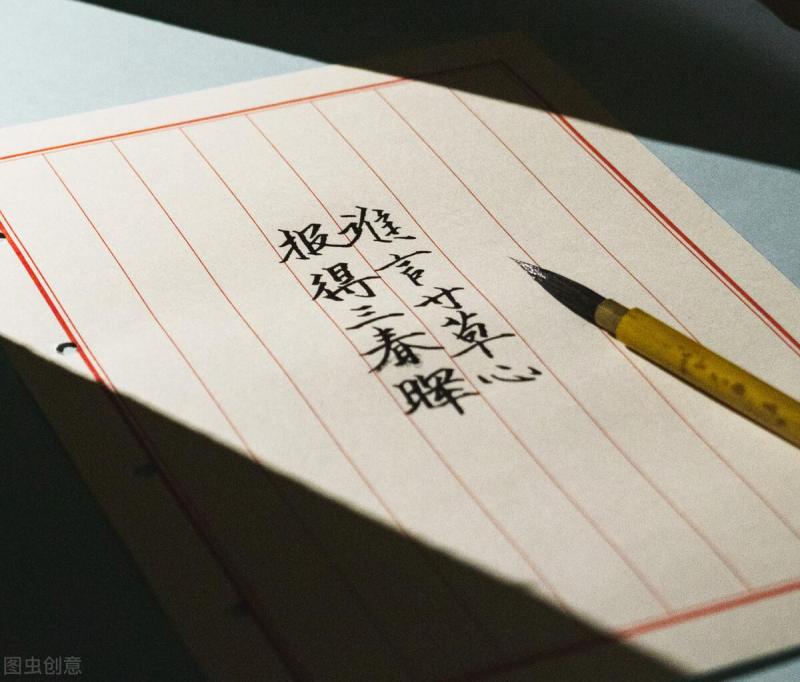 谁言寸草心
报得三春晖
图虫创意